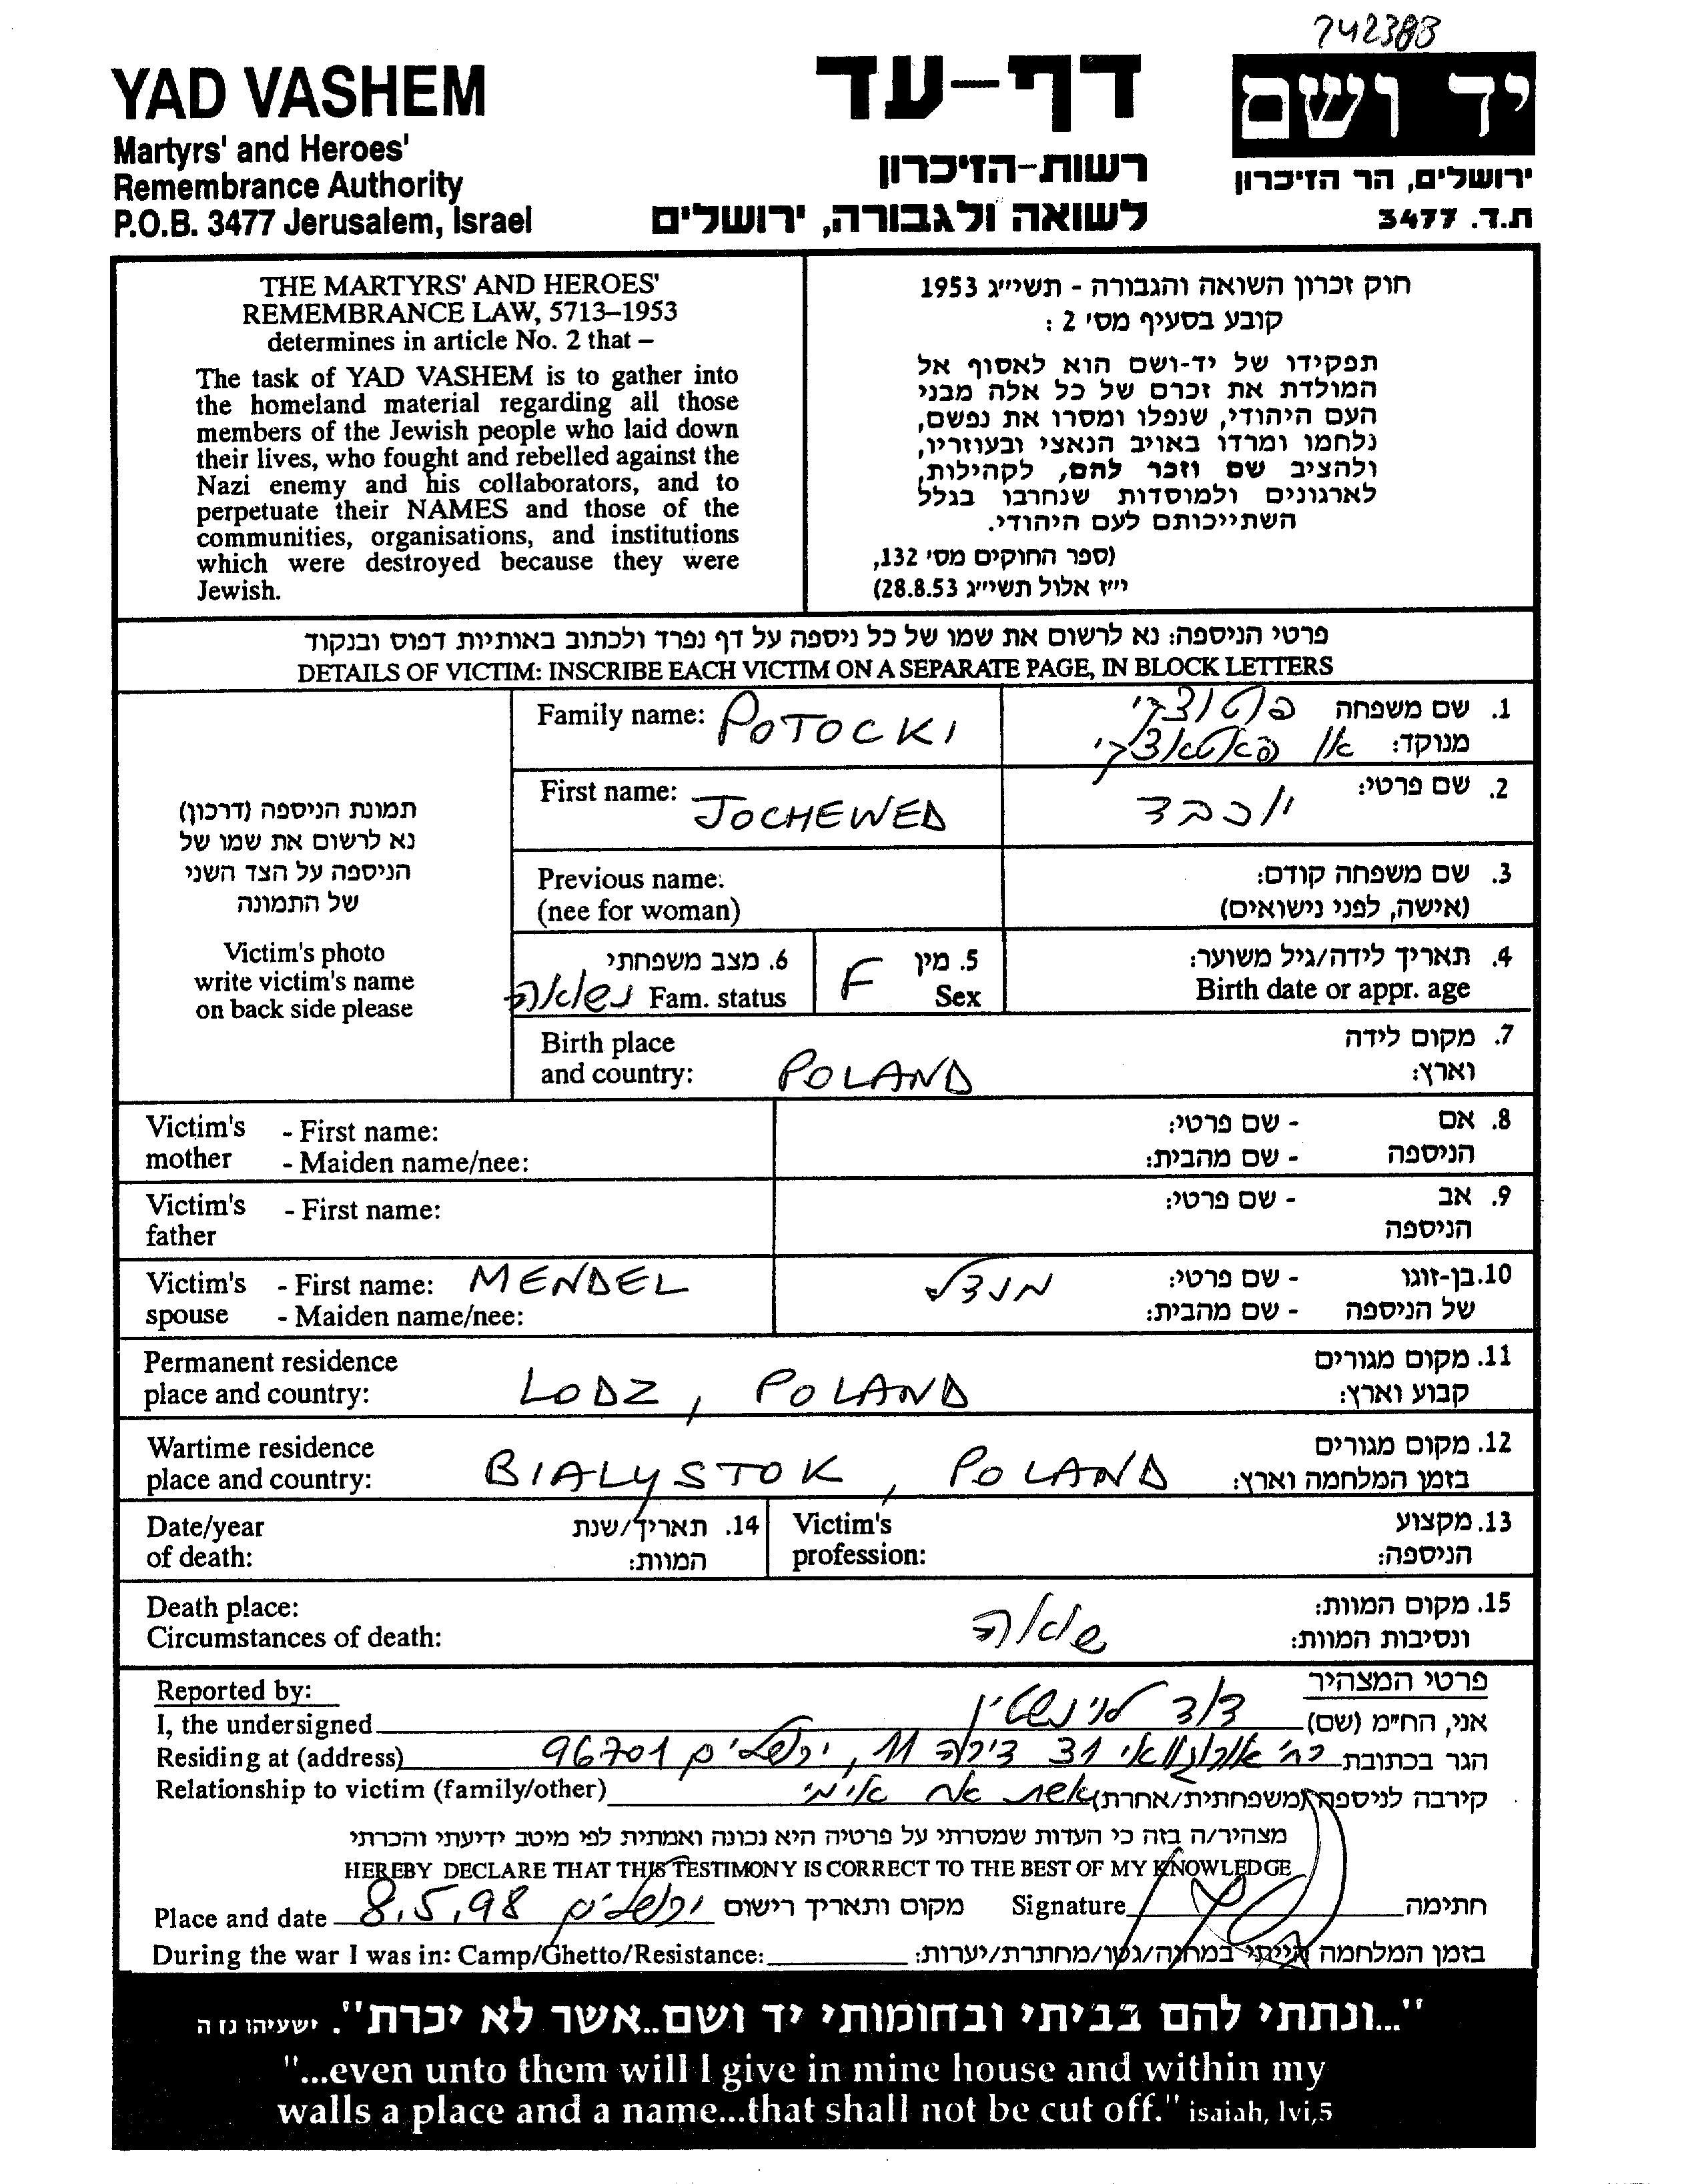 742388
YAD VASHEM
Martyrs' and Heroes'
Remembrance Authority
P.O.B. 3477 Jerusalem, Israel
דף-עד
רשות-הזיכרון
לשואה ולגבורה, ירושלים
יד ושם
ירושלים, הר הזיכרון
ת.ד. 3477
THE MARTYRS' AND HEROES'
REMEMBRANCE LAW, 5713–1953
determines in article No. 2 that –
The task of YAD VASHEM is to gather into
the homeland material regarding all those
members of the Jewish people who laid down
their lives, who fought and rebelled against the
Nazi enemy and his collaborators, and to
perpetuate their NAMES and those of the
communities, organisations, and institutions
which were destroyed because they were
Jewish.
חוק זכרון השואה והגבורה - תשי״ג 1953
קובע בסעיף מס׳ 2 :
תפקידו של יד-ושם הוא לאסוף אל
המולדת את זכרם של כל אלה מבני
העם היהודי, שנפלו ומסרו את נפשם,
נלחמו ומרדו באויב הנאצי ובעוזריו,
ולהציב שם וזכר להם, לקהילות,
לארגונים ולמוסדות שנחרבו בגלל
השתייכותם לעם היהודי.
(ספר החוקים מס׳ 132,
י״ז אלול תשי״ג 28.8.53)
פרטי הניספה: נא לרשום את שמו של כל ניספה על דף נפרד ולכתוב באותיות דפוס ובנקוד
DETAILS OF VICTIM: INSCRIBE EACH VICTIM ON A SEPARATE PAGE, IN BLOCK LETTERS
תמונת הניספה (דרכון)
נא לרשום את שמו של
הניספה על הצד השני
של התמונה
Victim's photo
write victim's name
on back side please
Family name: POTOCKI
1. שם משפחה פוטוצקי
מנוקד: או פאטאצקי
First name: JOCHEWED
2. שם פרטי: יוכבד
Previous name:
(nee for woman)
3. שם משפחה קודם:
(אישה, לפני נישואים)
6. מצב משפחתי
Fam. status נשואה
5. מין
Sex F
4. תאריך לידה/גיל משוער:
Birth date or appr. age
Birth place
and country: POLAND
7. מקום לידה
וארץ:
Victim's - First name:
mother - Maiden name/nee:
8. אם - שם פרטי:
הניספה - שם מהבית:
Victim's - First name:
father
9. אב - שם פרטי:
הניספה
Victim's - First name: MENDEL
spouse - Maiden name/nee:
10. בן-זוגו - שם פרטי: מנדל
של הניספה - שם מהבית:
Permanent residence
place and country: LODZ, POLAND
11. מקום מגורים
קבוע וארץ:
Wartime residence
place and country: BIALYSTOK, POLAND
12. מקום מגורים
בזמן המלחמה וארץ:
Date/year
of death:
14. תאריך/שנת
המוות:
Victim's
profession:
13. מקצוע
הניספה:
Death place:
Circumstances of death:
15. מקום המוות:
ונסיבות המוות: שואה
Reported by: פרטי המצהיר
I, the undersigned אני, החי״מ (שם) דוד
Residing at (address) הגר בכתובת רח׳ אורוגוואי 31 דירה 11, ירושלים 96701
Relationship to victim (family/other) קירבה לניספה (משפחתית/אחרת) אשת אח אימי
מצהיר/ה בזה כי העדות שמסרתי על פרטיה היא נכונה ואמתית לפי מיטב ידיעתי והכרתי
HEREBY DECLARE THAT THIS TESTIMONY IS CORRECT TO THE BEST OF MY KNOWLEDGE
Place and date 8.5.98 ירושלים מקום ותאריך רישום Signature חתימה
During the war I was in: Camp/Ghetto/Resistance: בזמן המלחמה הייתי במחנה/גטו/מחתרת/יערות:
"...ונתתי להם בביתי ובחומותי יד ושם..אשר לא יכרת". ישעיהו נו ה
"...even unto them will I give in mine house and within my
walls a place and a name...that shall not be cut off." isaiah, lvi,5